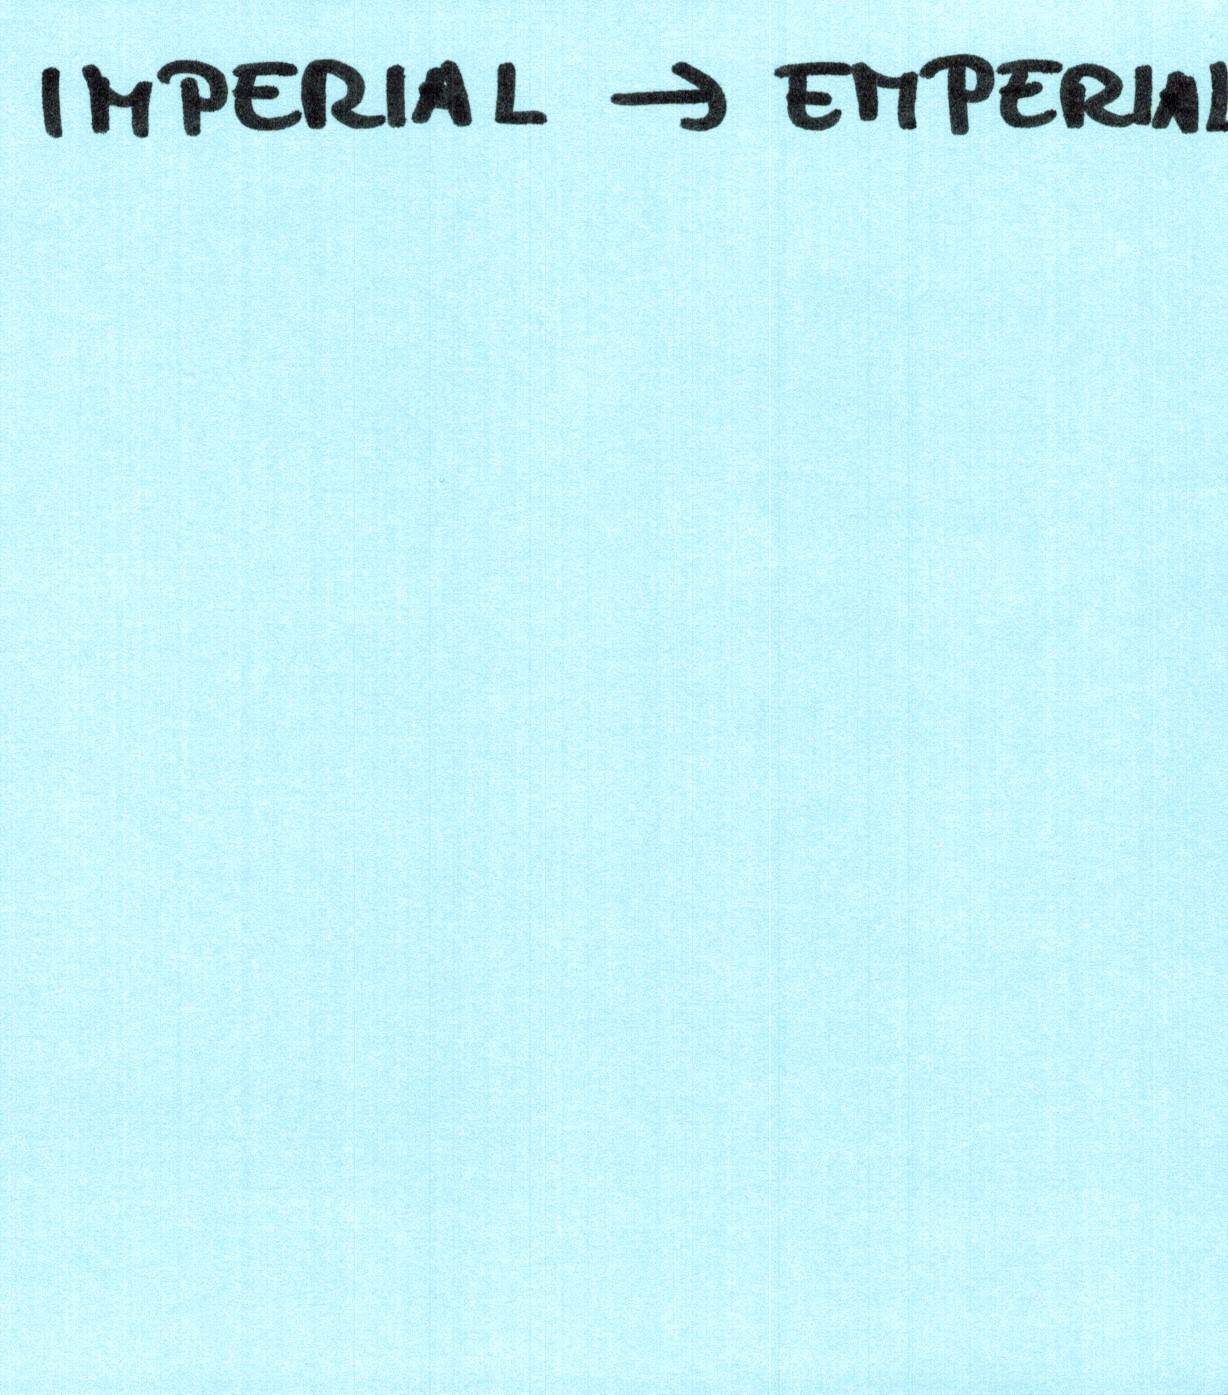 IMPERIAL → EMPERIAL